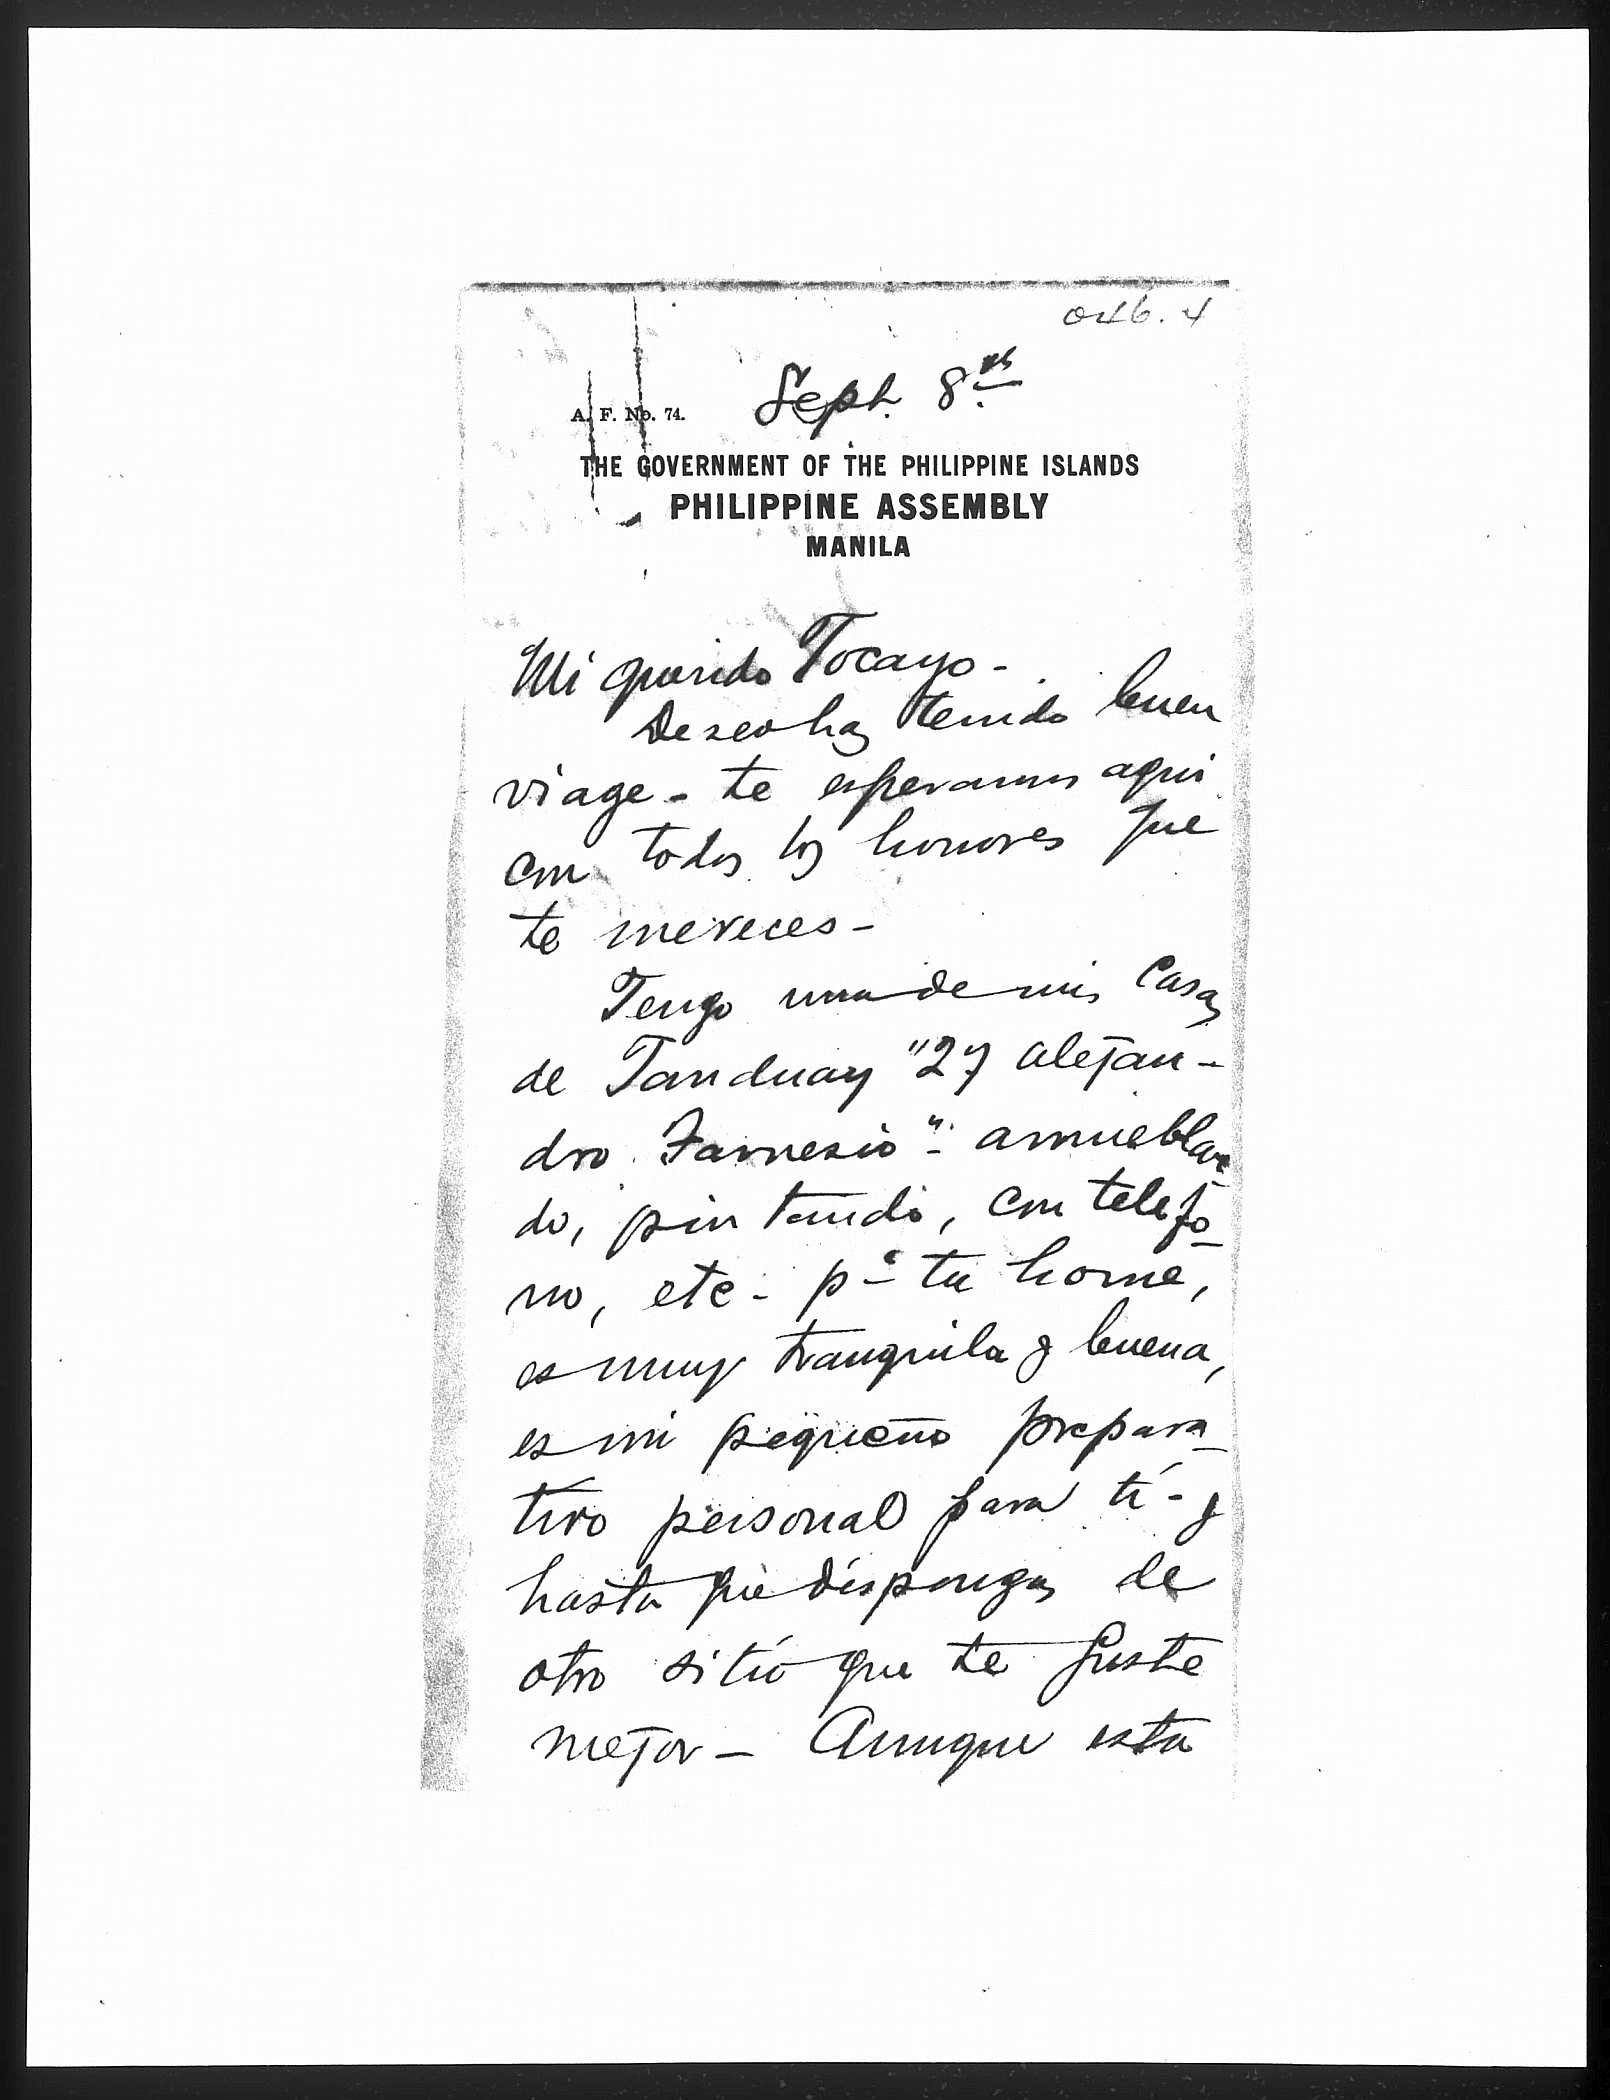 046.4
Sept. 8th
A. F. No. 74.
THE GOVERNMENT OF THE PHILIPPINE ISLANDS
PHILIPPINE ASSEMBLY
MANILA
Mi querido Tocayo -
Deseo has tenido buen
viage - te esperamos aqui
con todos los honores que
te mereces -
Tengo una de mis casas
de Tanduay "27 Alejan-
dro Farnesio" - amueblan-
do, pintando, con telefo-
no, etc - pa tu home,
es muy tranquila y buena,
es mi pequeño prepara-
tivo personal para tí - y
hasta que dispongas de
otro sitio que te guste
mejor - Aunque esta